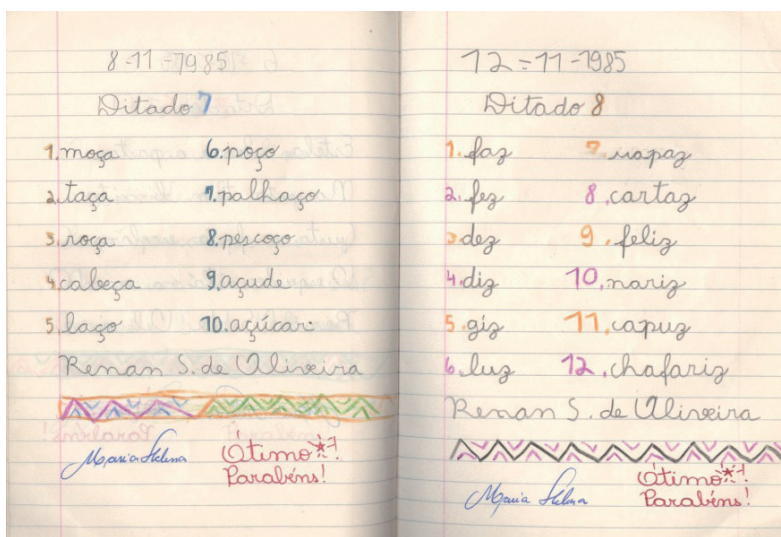 8-11-1985
Ditado 7
1. moça
2. taça
3. roça
4. cabeça
5. laço
6. poço
7. palhaço
8. pescoço
9. açude
10. açúcar
Renan S. de Oliveira
Maria Helena
Ótimo!
Parabéns!
12-11-1985
Ditado 8
1. faz
2. fez
3. dez
4. diz
5. giz
6. luz
7. rapaz
8. cartaz
9. feliz
10. nariz
11. capuz
12. chafariz
Renan S. de Oliveira
Maria Helena
Ótimo!
Parabéns!